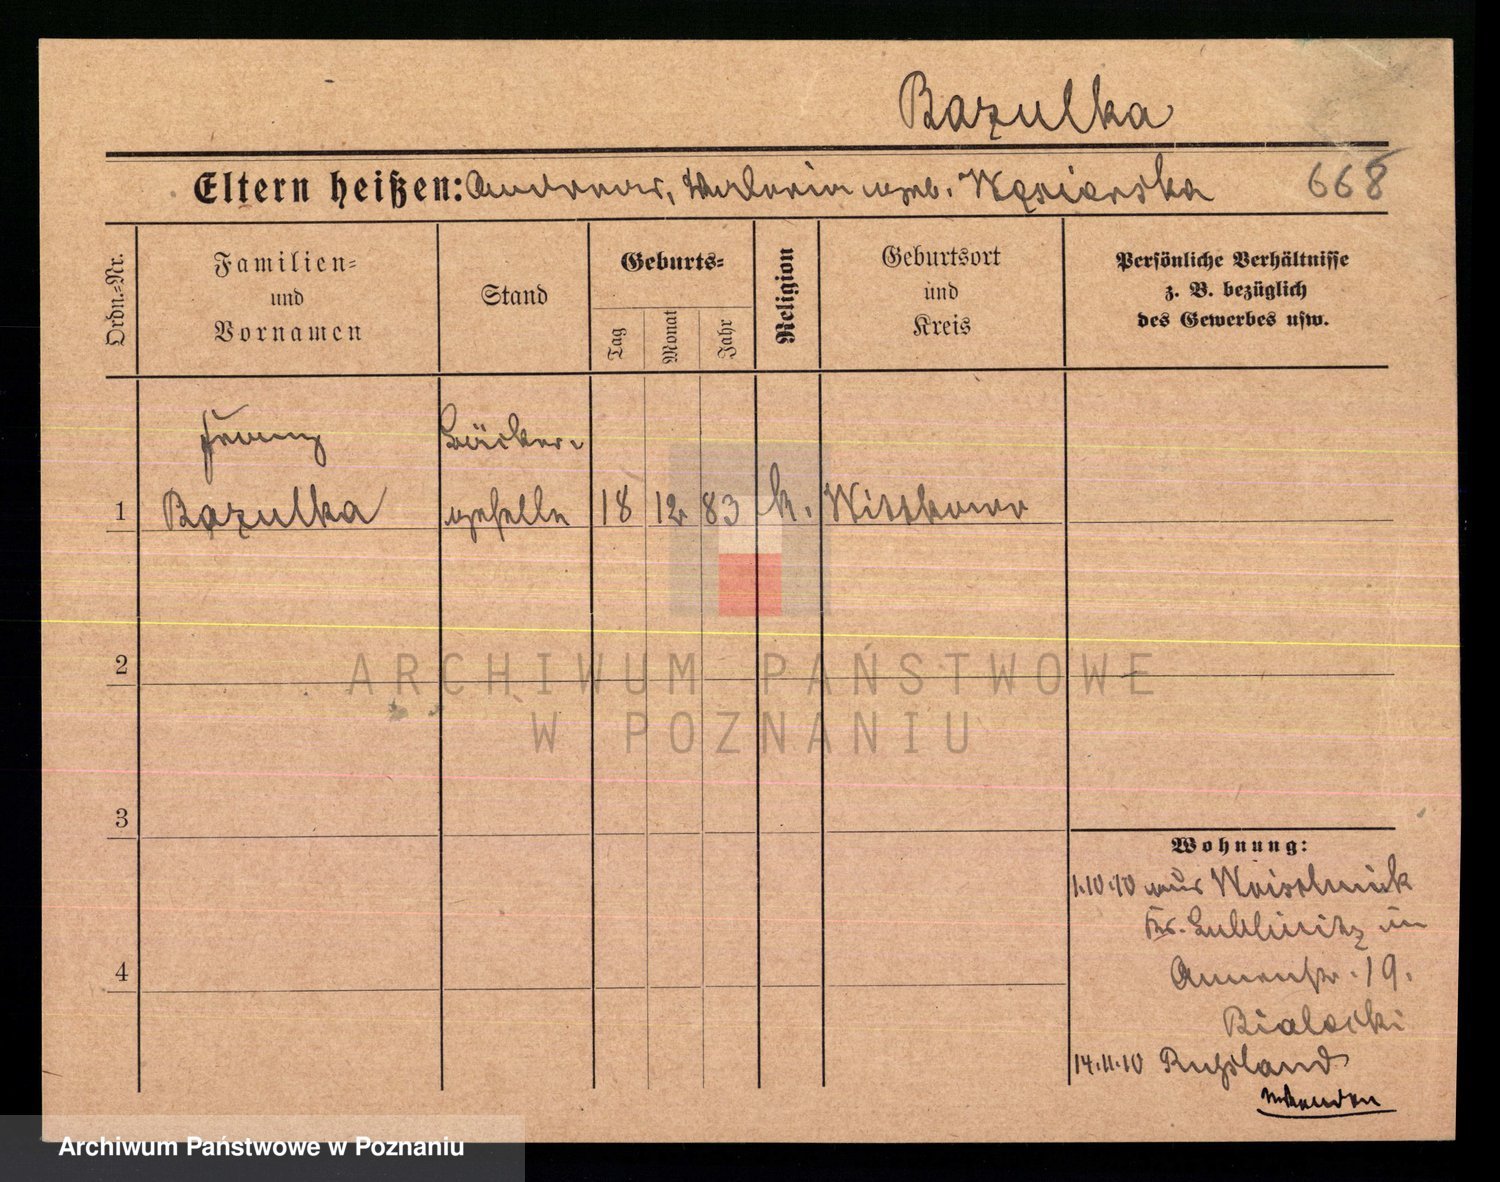 Bazulka
Eltern heißen: Andreas, Valeria geb. Węsierska 668
Ordn.-Nr.
Familien-
und
Vornamen
Stand
Geburts-
Tag
Monat
Jahr
Religion
Geburtsort
und
Kreis
Persönliche Verhältnisse
z. B. bezüglich
des Gewerbes usw.
Franz
Bäcker-
1 Bazulka geselle 18 12 83 k. Wittkowo
2
ARCHIWUM PAŃSTWOWE
W POZNANIU
3
Wohnung:
1.10.10 aus
Kr. Lublinitz in
Annenstr. 19.
Bialecki
14.11.10 Russland
4
Archiwum Państwowe w Poznaniu